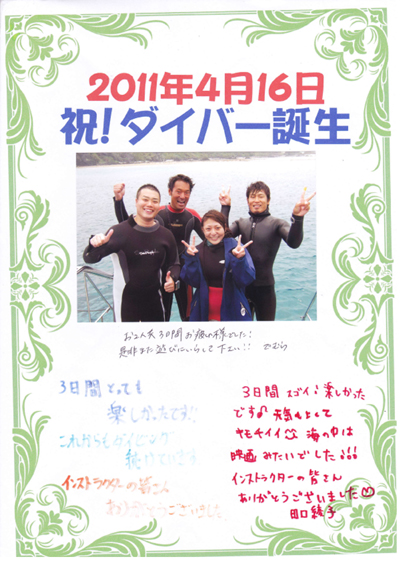 2011年4月16日
祝!ダイバー誕生
お2人共3日間お疲れ様でした!
是非また遊びにいらして下さい!!
3日間とっても
楽しかったです!!
これからもダイビング
続けていきます。
インストラクターの皆さん
ありがとうございました
3日間スゴイ楽しかった
です♪天気もよくて
キモチイイ 海の中は
映画みたいでした!!!
インストラクターの皆さん
ありがとうございました♡
田口綾子